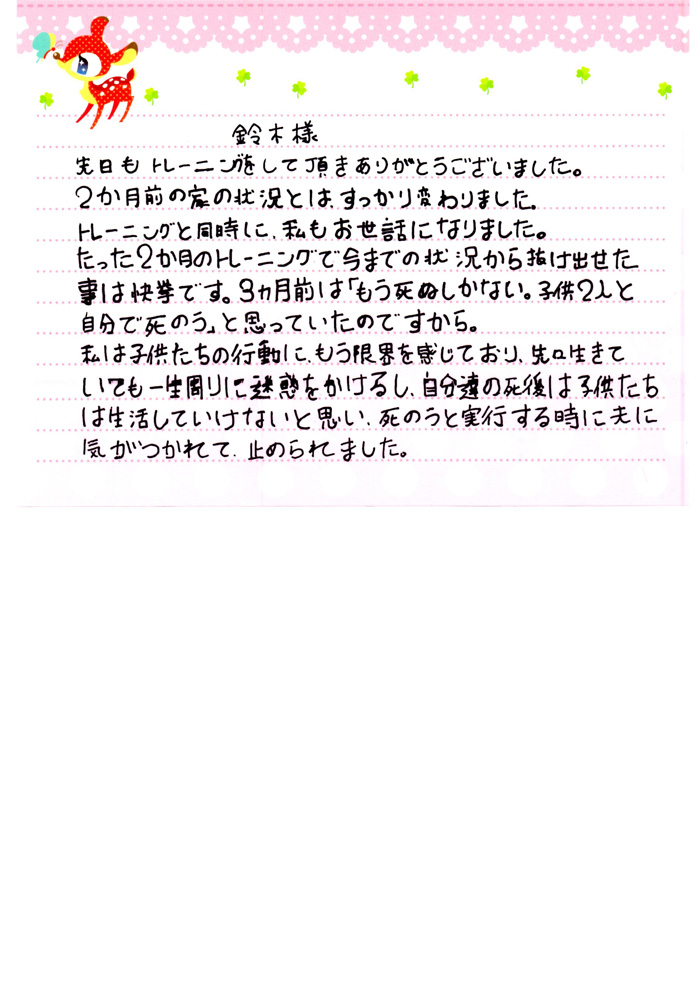 鈴木様
先日もトレーニングをして頂きありがとうございました。
2か月前の家の状況とは、すっかり変わりました。
トレーニングと同時に、私もお世話になりました。
たった2か月のトレーニングで今までの状況から抜け出せた
事は快挙です。3ヵ月前は「もう死ぬしかない。子供2人と
自分で死のう」と思っていたのですから。
私は子供たちの行動に、もう限界を感じており、先生きて
いても一生周りに迷惑をかけるし、自分達の死後は子供たち
は生活していけないと思い、死のうと実行する時に夫に
気がつかれて、止められました。